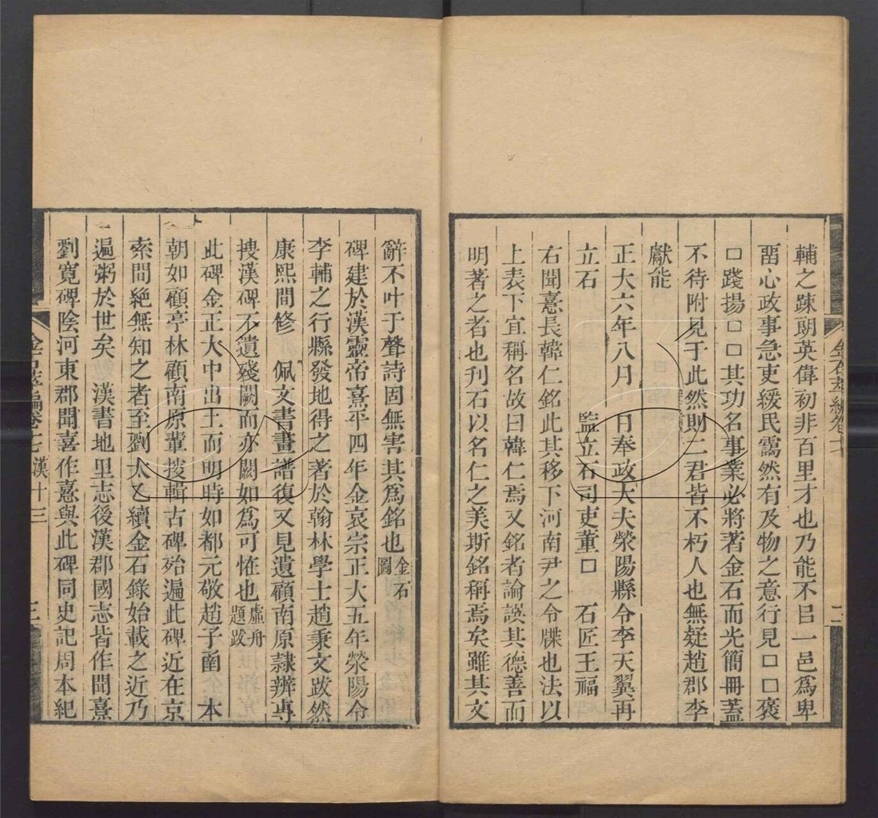 輔之踈朗英偉初非百里才也乃能不㠯一邑爲卑
畱心政事急吏緩民靄然有及物之意行見口口褒
口踐揚口口其功名事業必將著金石而光簡冊蓋
不待附見于此然則二君皆不朽人也無疑趙郡李
獻能
正大六年八月　日奉政大夫滎陽縣令李天翼再
立石　監立石司吏董口　石匠王福
右聞憙長韓仁銘此其移下河南尹之令牒也法以
上表下宜稱名故曰韓仁焉又銘者論譔其德善而
明著之者也刊石以名仁之美斯銘稱焉矣雖其文
金石萃編卷十七
二
辭不叶于聲詩固無害其爲銘也金石圖
碑建於漢靈帝熹平四年金哀宗正大五年滎陽令
李輔之行縣發地得之著於翰林學士趙秉文跋然
康熙間修　佩文書畫譜復又見遺顧南原隷辨專
搜漢碑不遺殘闕而亦闕如爲可恠也虛舟題跋
此碑金正大中出土而明時如都元敬趙子函　本
朝如顧亭林顧南原輩搜輯古碑殆遍此碑近在京
索間絶無知之者至劉太乙續金石錄始載之近乃
一遍粥於世矣　漢書地里志後漢郡國志皆作聞熹
劉寬碑陰河東郡聞喜作憙與此碑同史記周本紀
金石萃編卷十七　漢十三
三